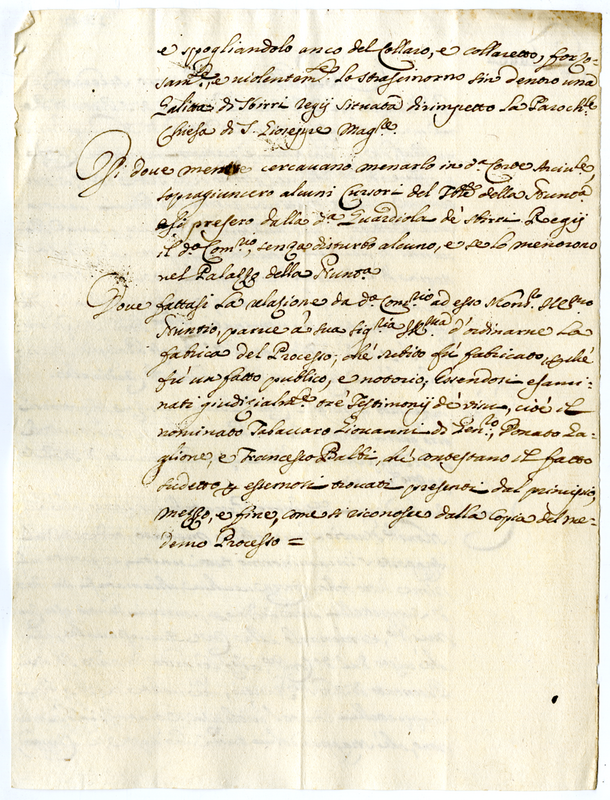 e spogliandolo anco del Collaro, e collaretto, forzo-
sam.te, e violentem.te lo strascinorno sin dentro una
Galitta di Sbirri regij situata dirimpetto la Paroch.le
Chiesa di S. Gioseppe Magg.re
Di dove mentre cercavano menarlo in d.a Corte
sopragiunsero alcuni Cursori del Trib.le della Nunt.a
presero dalla d.a Guardiola de Sbirri Regij
il d.o Com.rio, senza disturbo alcuno, e se lo menorono
nel Palazzo della Nunt.a
Dove fattasi la relazione da d.o Com.rio ad esso Mons.re
Nuntio, parve à sua Sig.ria Ill.ma d'ordinarne la
fabrica del Processo, chè subito fù fabricato, chè
fù un fatto publico, e notorio, essendosi esami-
nati giudicialm.te trè Testimonij de visu, cioè il
nominato Tabaccaro Giovanni di Gen.ro, Donato
e Francesco Baldi, chè contestano il fatto
sudetto, essernosi trovati presenti dal principio,
mezzo, e fine, come si riconosce dalla Copia del me-
demo Processo =